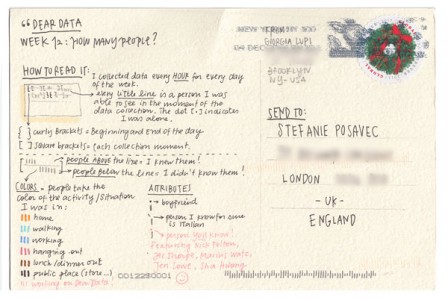 " DEAR DATA
WEEK 12: HOW MANY PEOPLE?
HOW TO READ IT:
I collected data every HOUR for every day
of the week.
every LITTLE LINE is a person I was
able to see in the moment of the
data collection. The dot [·] indicates
I was alone.
{ } curly brackets = Beginning and end of the day.
[ ] square brackets = each collection moment.
people ABOVE the line = I knew them!
people below the line = I didn't know them!
COLORS - people take the
color of the activity/situation
I was in:
home
walking
working
hanging out
lunch/dinner out
public place (store...)
working on Dear Data
ATTRIBUTES
boyfriend
person I know for ame
is Italian
person YOU know!
Featuring
0012230001
FROM:
GIORGIA LUPI
BROOKLYN
NY - USA
NEW YORK NY 100
04 DEC
SEND TO:
STEFANIE POSAVEC
LONDON
- UK -
ENGLAND